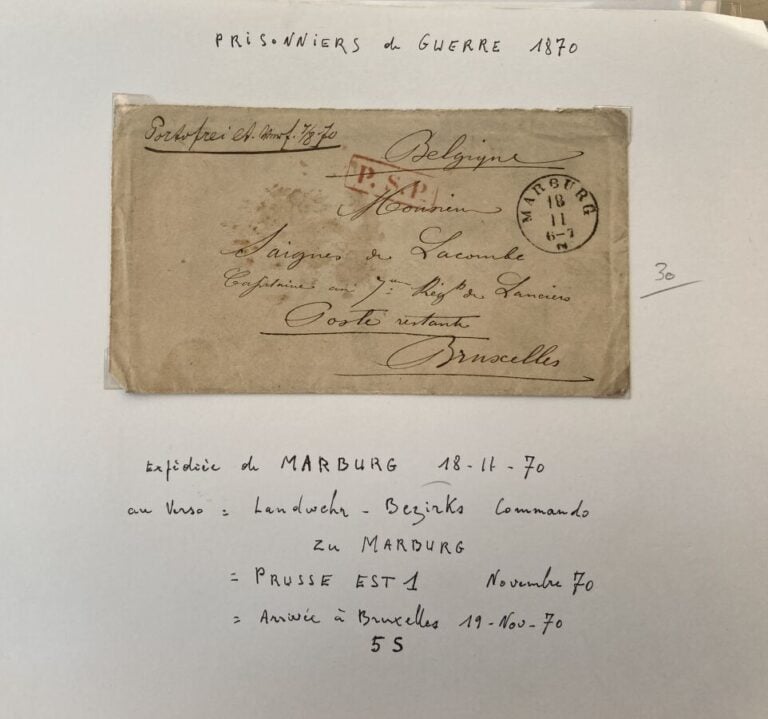 PRISONNIERS de GUERRE 1870
Portofrei lt. Verf. 7/8.70
Belgique
P.S.P.
Monsieur
MARBURG
18
11
6-7
N
Saignes de Lacombe
Capitaine au 7me Régt de Lanciers
Poste restante
Bruxelles
30
Expédiée de MARBURG 18-11-70
au Verso = Landwehr - Bezirks Commando
zu MARBURG
= PRUSSE EST 1 Novembre 70
= Arrivée à Bruxelles 19-Nov-70
5 S